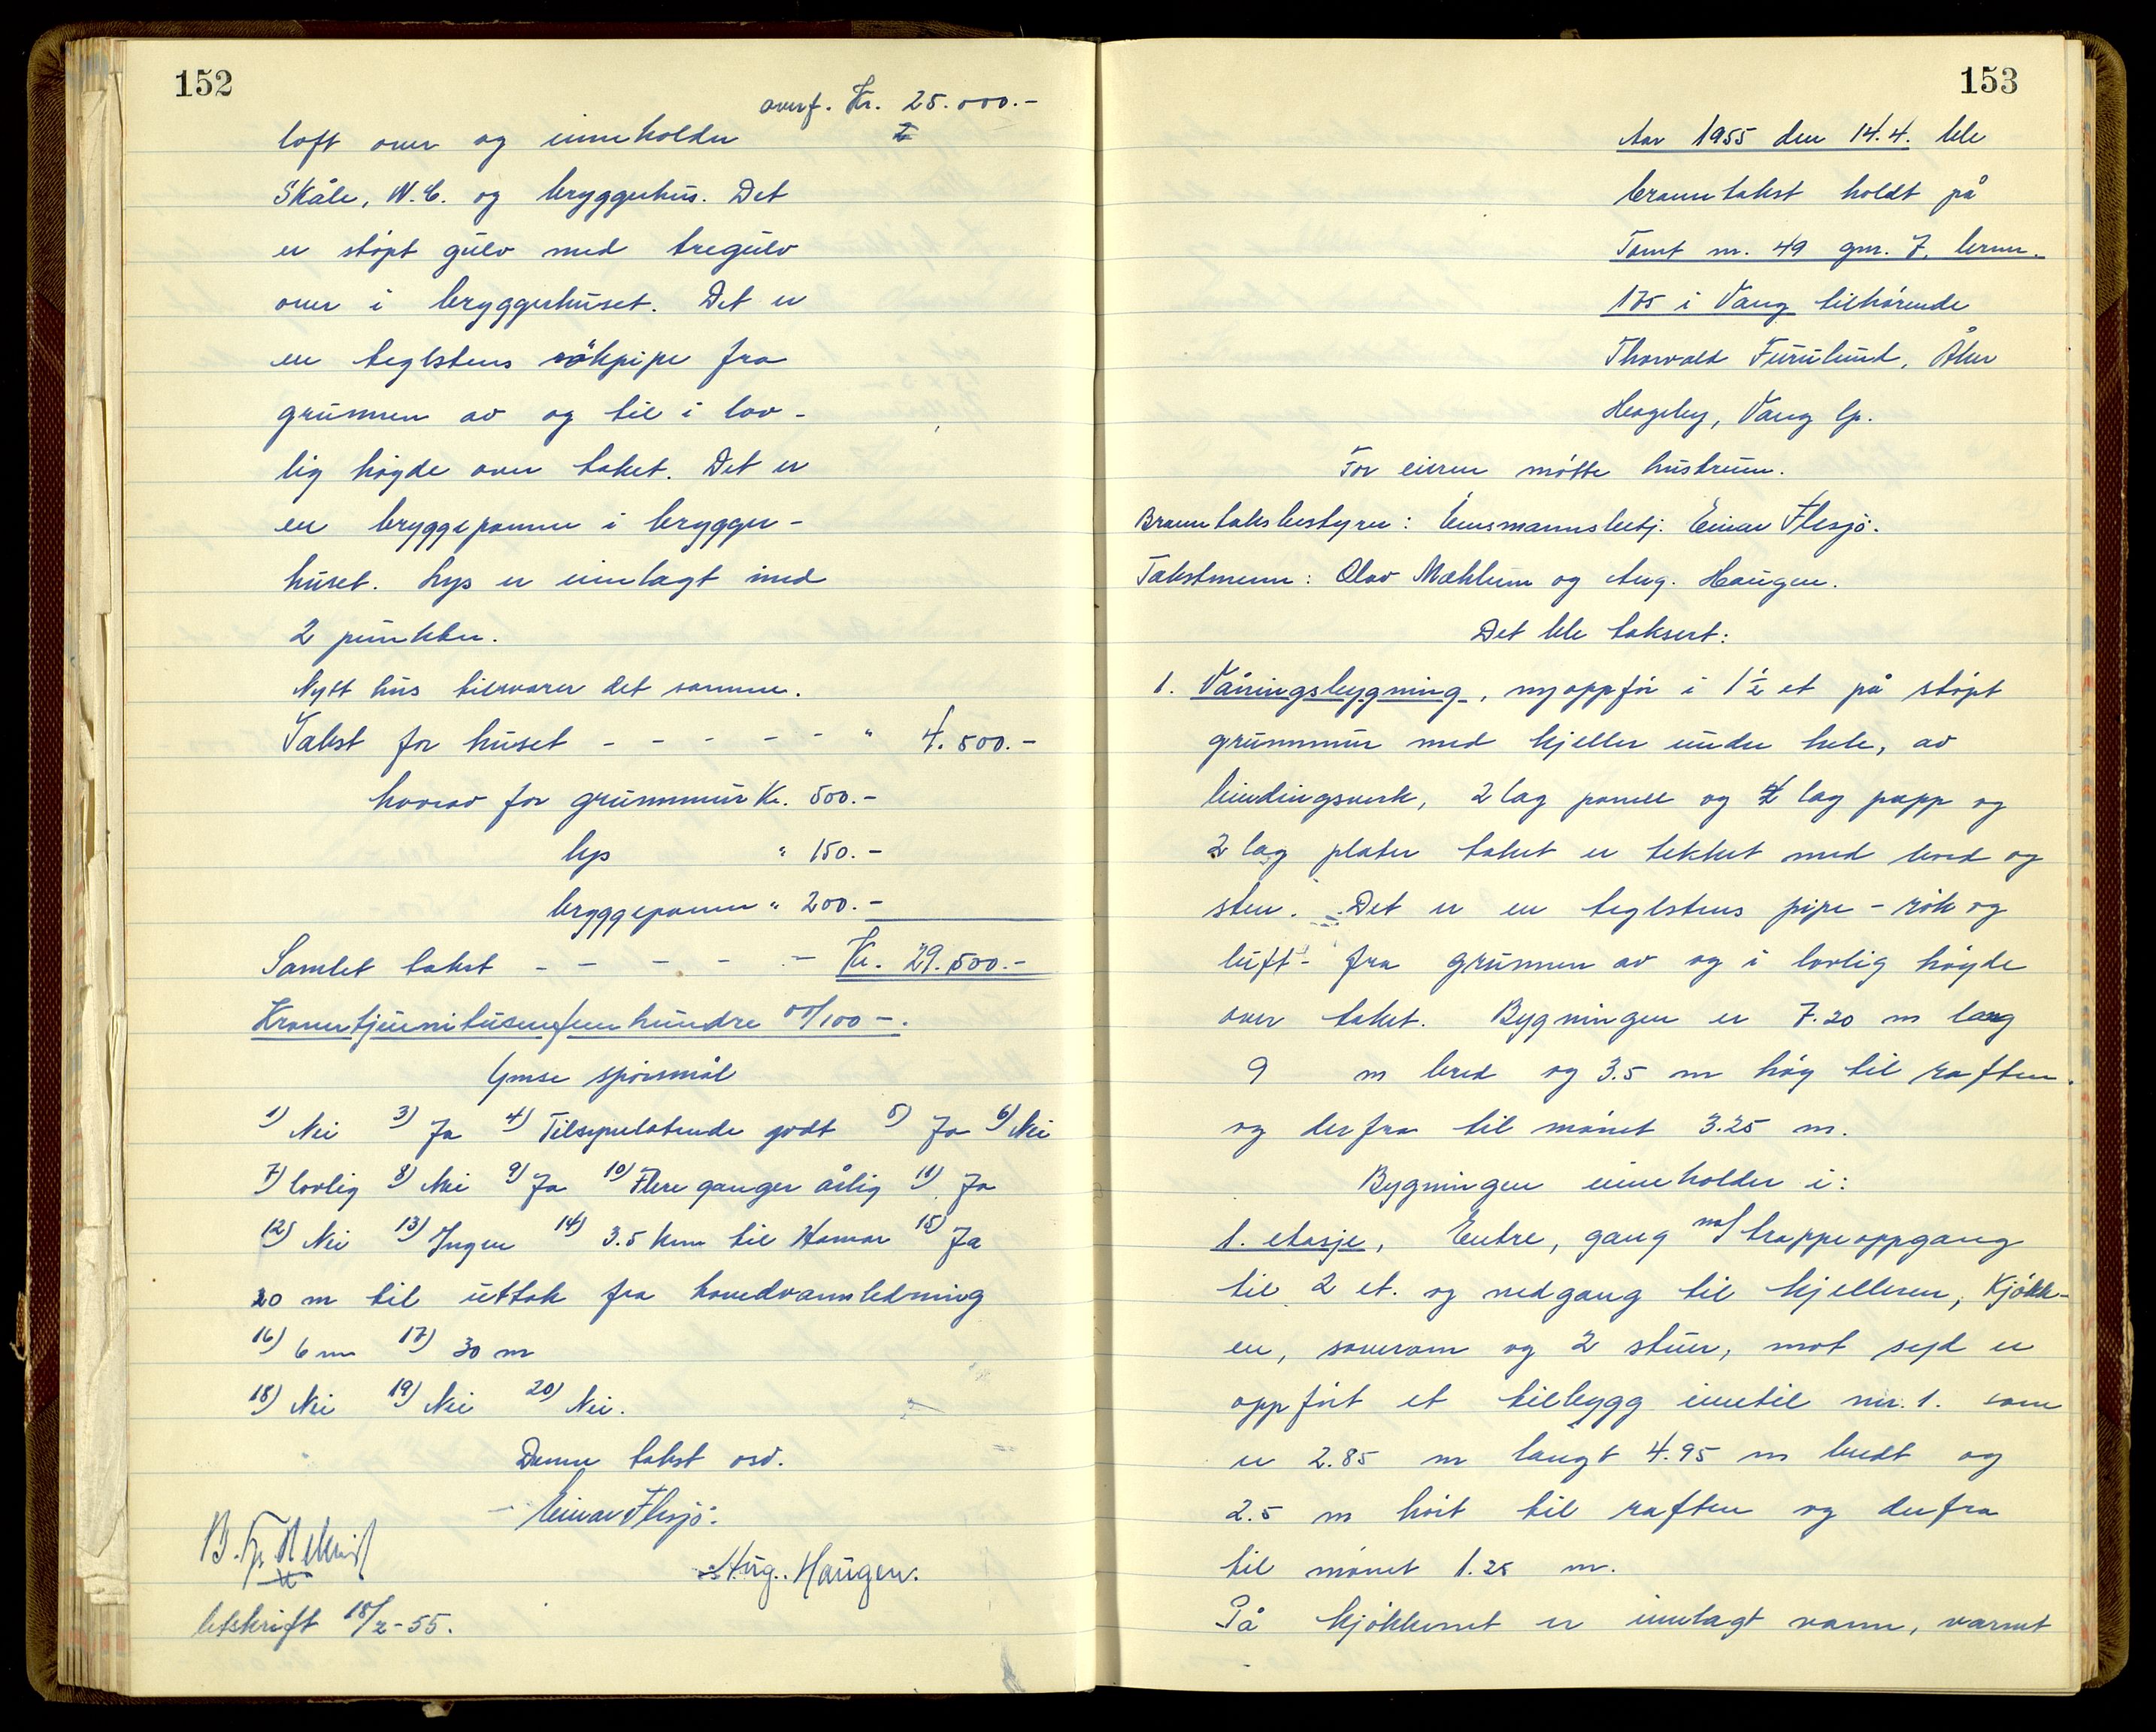 152
overf. Kr. 25.000.-
loft over og inneholder
Skåle, W.C. og bryggerhus. Det
er støpt gulv med tregulv
over i bryggerhuset. Det er
en teglstens rökpipe fra
grunnen av og til i lov-
lig høgde over taket. Det er
en bryggepanne i brygger-
huset. Lys er innlagt med
2 punkter.
Nytt hus tilsvarer det samme.
Takst for huset - - - - - " 4.500.-
hvorav for grunnmur Kr. 500.-
lys " 150.-
bryggepanne " 200.-
Samlet takst - - - - - Kr. 29.500.-
Kronertjuenitusenfemhundre 00/100 -.
Ymse spørsmål
1) Nei 3) Ja 4) Tilsynelatende godt 5) Ja 6) Nei
7) lovlig 8) Nei 9) Ja 10) Flere ganger årlig 11) Ja
12) Nei 13) Ingen 14) 3.5 km til Hamar 15) Ja
20 m til uttak fra hovedvannledning
16) 6 m 17) 30 m
18) Nei 19) Nei 20) Nei.
Denne takst osv.
Einar Flesjø.
Aug. Haugen.
B. Tp.
Utskrift 18/2-55.
153
Aar 1955 den 14.4. ble
branntakst holdt på
Tomt nr. 49 gnr. 7. brnr.
175 i Vang tilhørende
Thorvald Furulund, Åker
Hageby, Vang lp.
For eieren møtte hustruen.
Branntakstbestyrer: Lensmannsbetj. Einar Flesjø.
Takstmenn: Olav Mæhlum og Aug. Haugen.
Det ble taksert:
1. Våningsbygning, nyoppfør i 1 1/2 et på støpt
grunnmur med kjeller under hele, av
bindingsverk, 2 lag panel og 4 lag papp og
2 lag plater taket er tekket med bord og
sten. Det er en teglstens pipe - røk og
luft - fra grunnen av og i lovlig høyde
over taket. Bygningen er 7.20 m lang
9 m bred og 3.5 m høg til raften.
og derfra til mønet 3.25 m.
Bygningen inneholder i:
1. etasje, Entre, gang m/ trappeoppgang
til 2 et. og nedgang til kjelleren, Kjøkk-
en, soverom og 2 stuer, mot syd er
oppført et tilbygg inntil nr. 1. som
er 2.85 m langt 4.95 m bredt og
2.5 m høit til raften og derfra
til mønet 1.25 m.
På kjøkkenet er innlagt vann, varmt